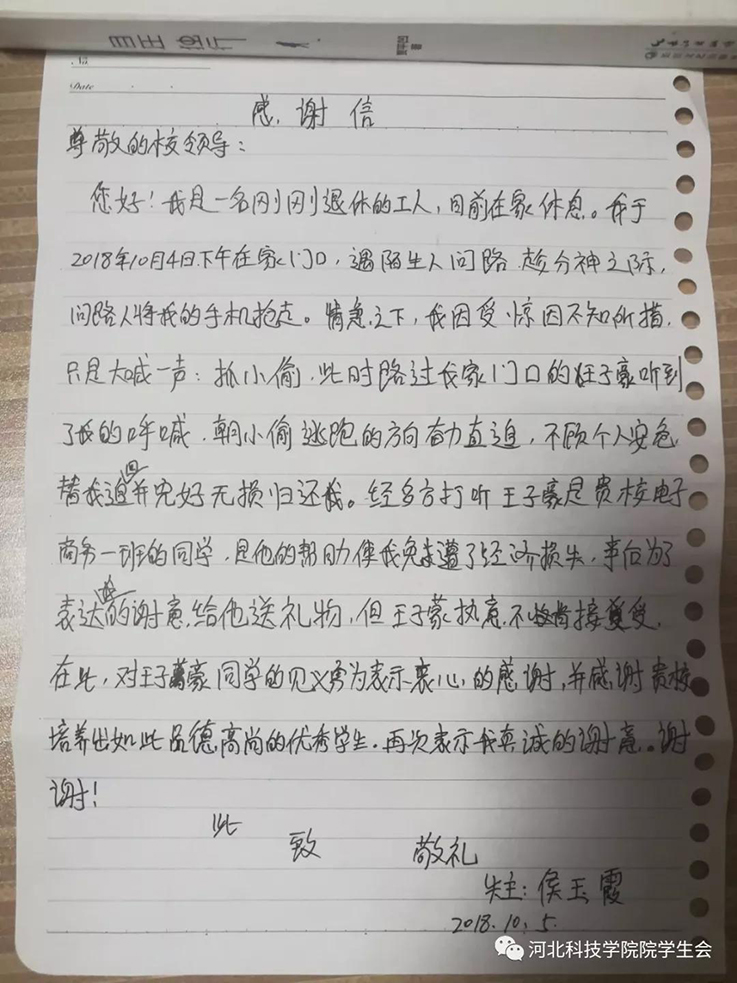 自在独行
贾平凹
著
No
Date
感谢信
尊敬的校领导：
您好！我是一名刚刚退休的工人，目前在家休息。我于
2018年10月4日下午在家门口，遇陌生人问路 趁分神之际，
问路人将我的手机抢走。情急之下，我因受惊因不知所措，
只是大喊一声：抓小偷，此时路过我家门口的王子豪听到
了我的呼喊，朝小偷逃跑的方向奋力直追，不顾个人安危
替我追回并完好无损归还我。经多方打听王子豪是贵校电子
商务一班的同学，是他的帮助使我免遭了经济损失，事后为了
表达我的谢意，给他送礼物，但王子豪执意不肯接受，
在此，对王子豪同学的见义勇为表示衷心的感谢，并感谢贵校
培养出如此品德高尚的优秀学生，再次表示我真诚的谢意。谢
谢！
此 致 敬礼
失主：侯玉霞
2018.10.5.
河北科技学院院学生会